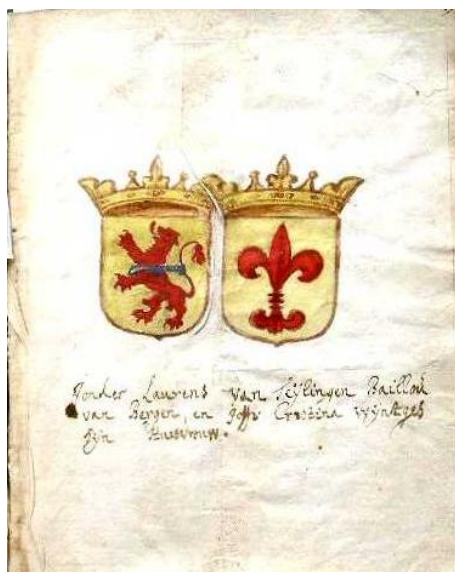 Jonker Laurens van Seijlingen Baillou
van Bergen, en Joffr Crestina Wijntges
zijn Huisvrouw.